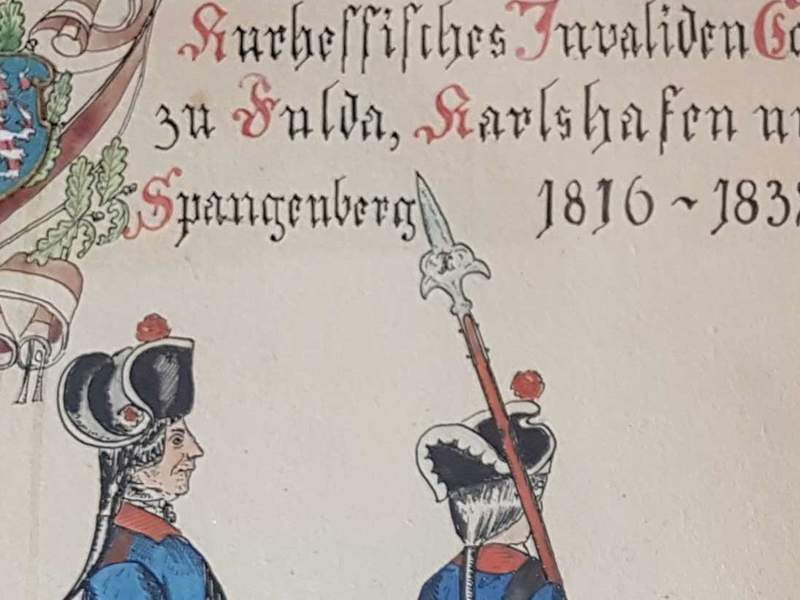 Kurhessisches Invaliden
zu Fulda, Karlshafen
Spangenberg 1816 ~ 183